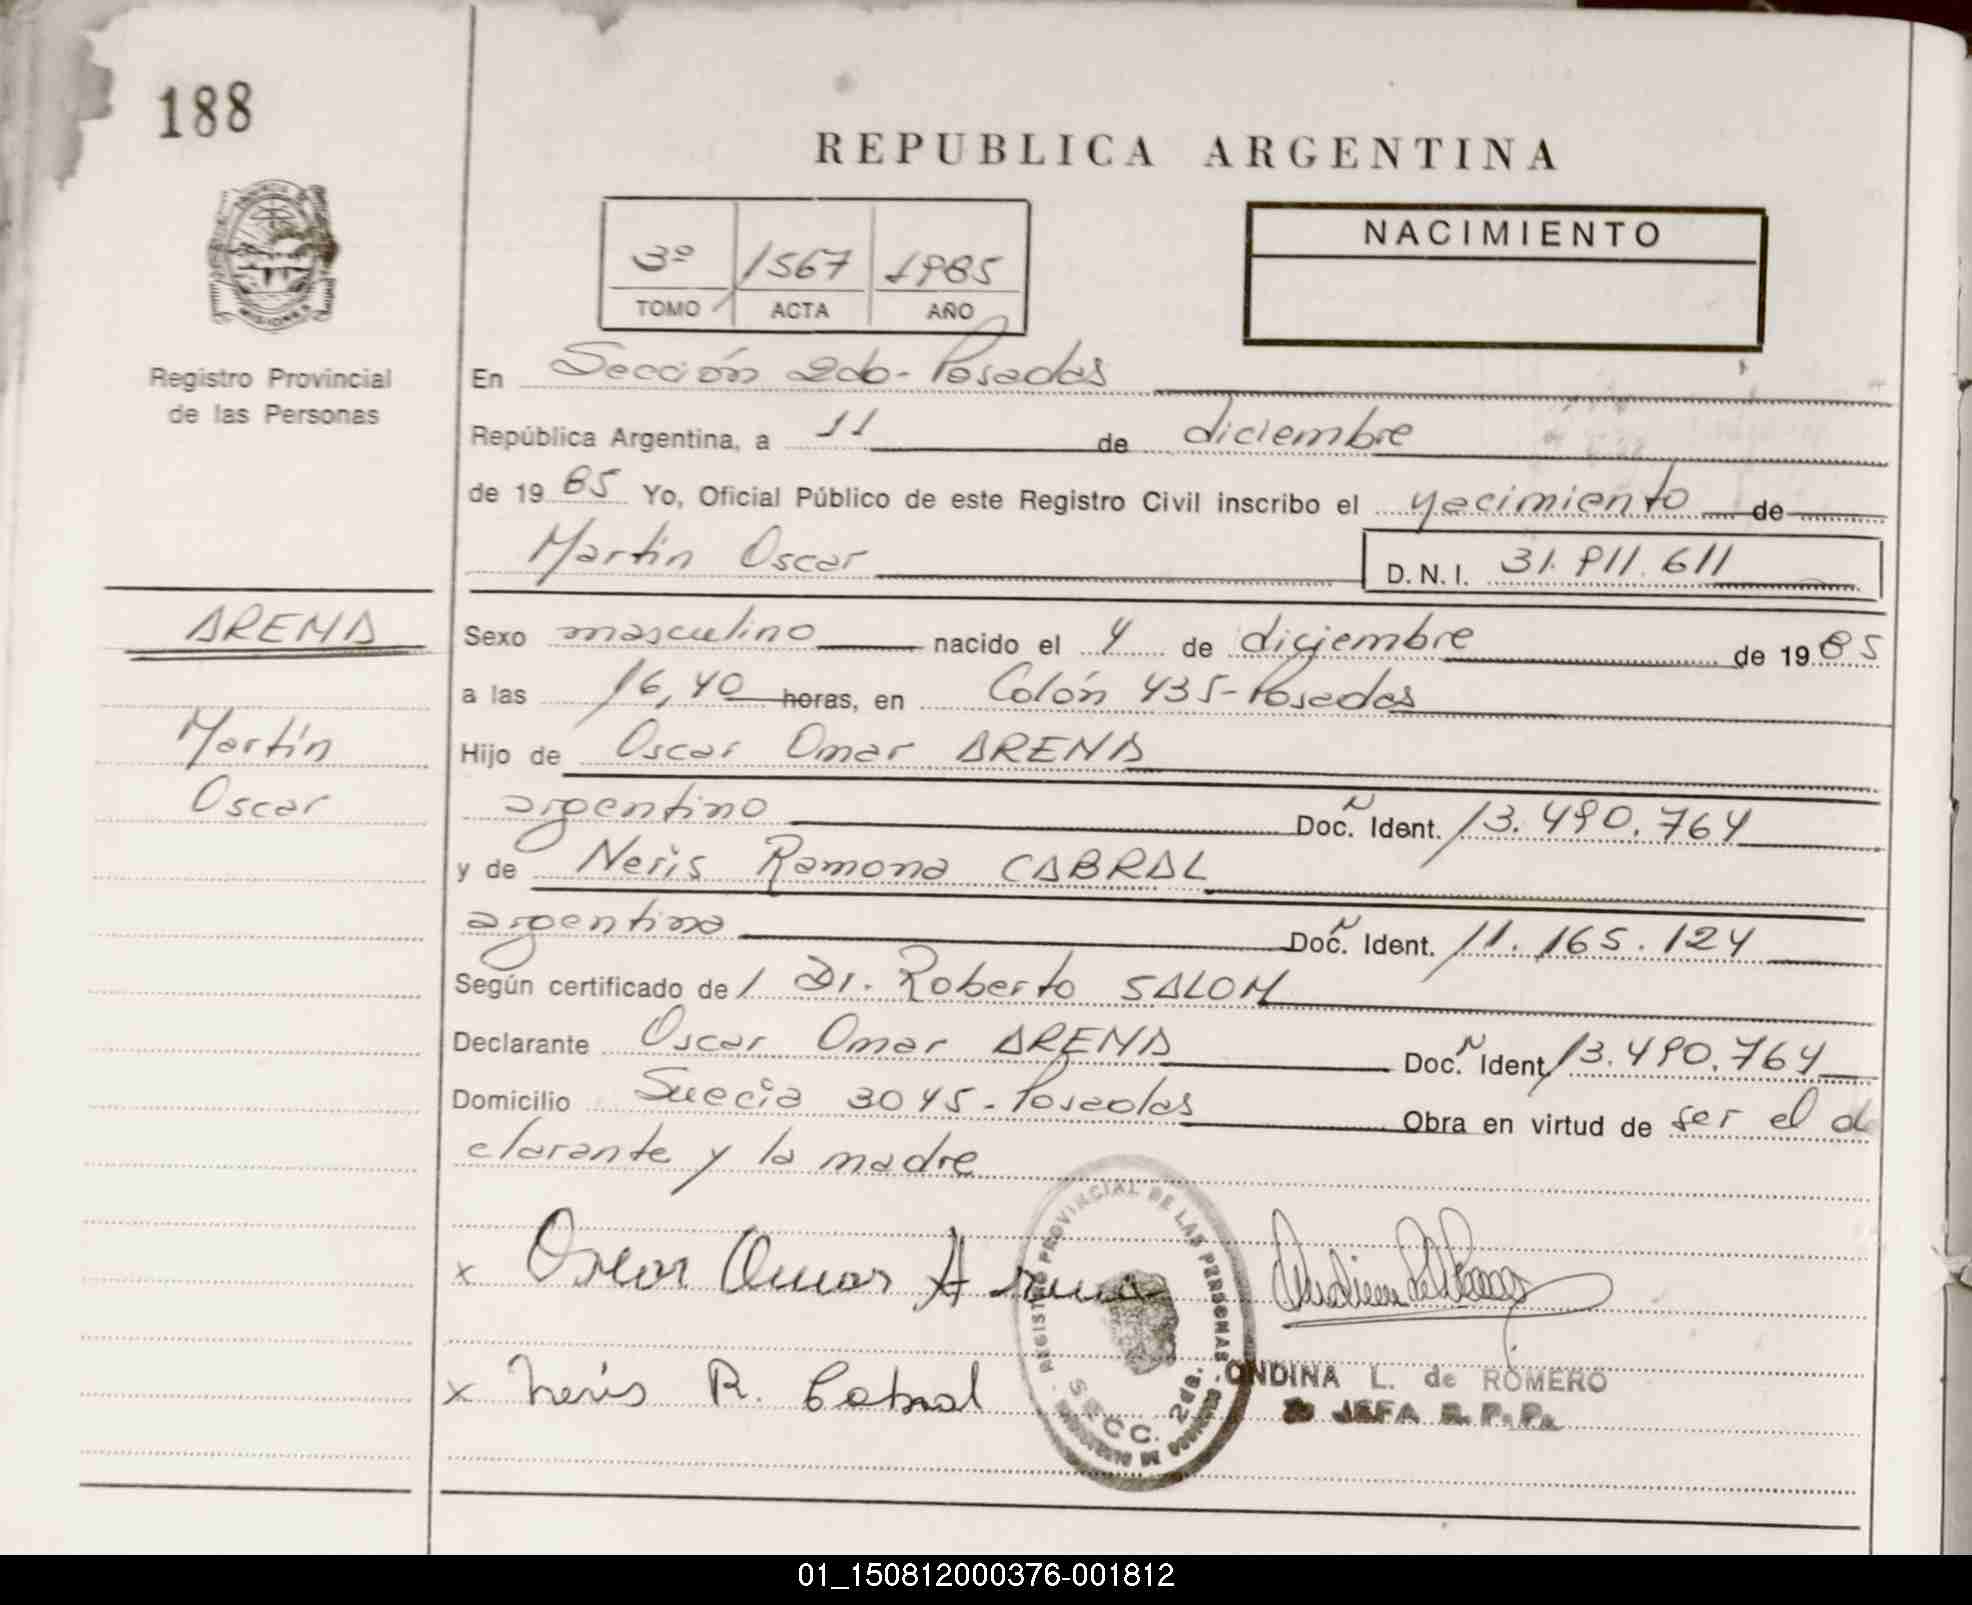 188
REPUBLICA ARGENTINA
3º 1567 1985
TOMO ACTA AÑO
NACIMIENTO
MISIONES
Registro Provincial
de las Personas
En Sección 2da- Posadas
República Argentina, a 11 de diciembre
de 19 85 Yo, Oficial Público de este Registro Civil inscribo el nacimiento de
Martín Oscar D. N. I. 31.911.611
ARENA
Martín
Oscar
Sexo masculino nacido el 4 de diciembre de 19 85
a las 16,40 horas, en Colón 435-Posadas
Hijo de Oscar Omar ARENA
argentino Doc. N Ident. 13.490.764
y de Neris Ramona CABRAL
argentina Doc. N Ident. 11.165.124
Según certificado de / Dr. Roberto SALOM
Declarante Oscar Omar ARENA Doc. N Ident. 13.490.764
Domicilio Suecia 3045- Posadas Obra en virtud de ser el de
clarante y la madre
x Oscar Omar Arena
x Neris R. Cabral
REGISTRO PROVINCIAL DE LAS PERSONAS
SECC. 2da.
ONDINA L. de ROMERO
JEFA R. P. P.
01_150812000376-001812